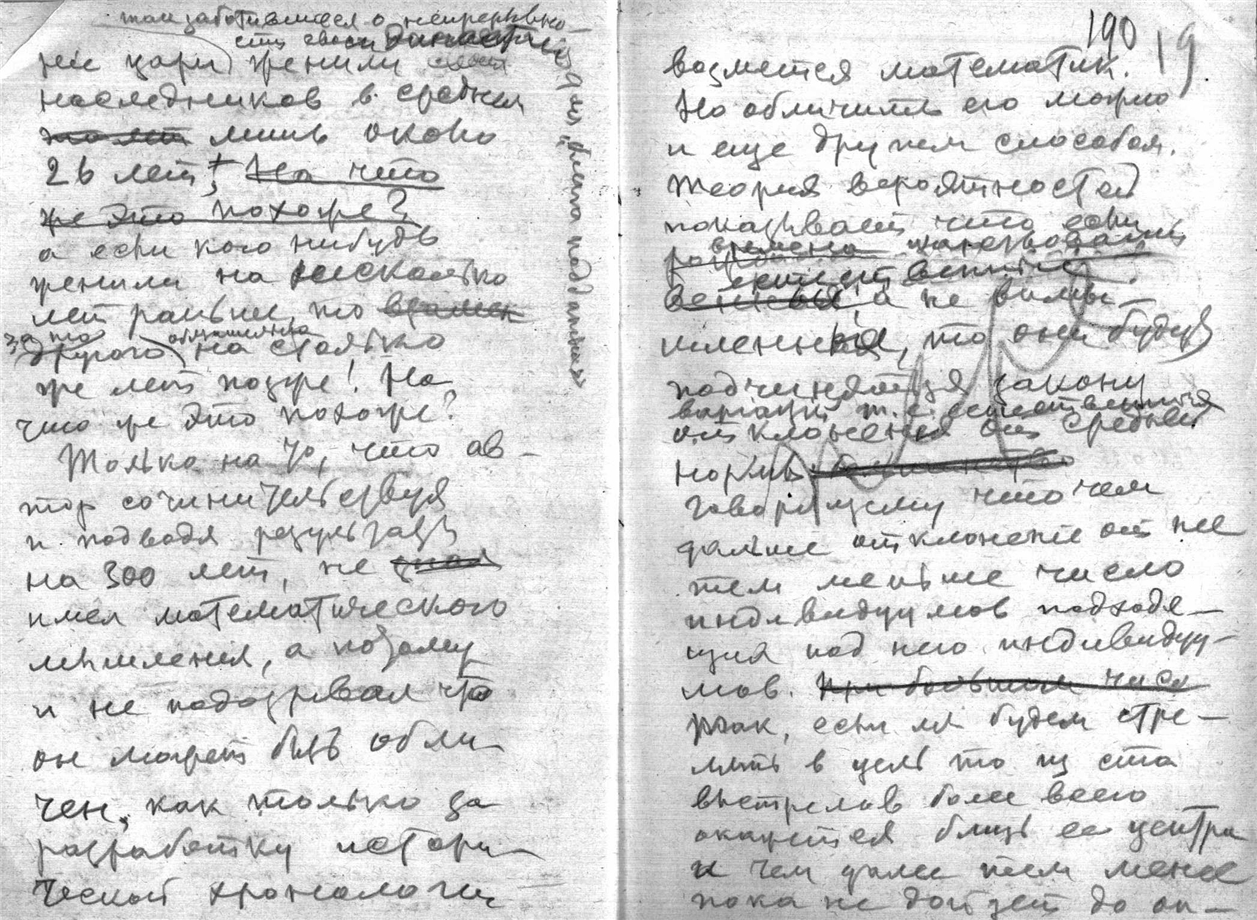 так заботившиеся о непрерывно-
сти своей династии
ские цари женили своих
наследников в среднем
лишь около
26 лет! На что
же это похоже?
а если кого нибудь
женили на несколько
лет раньше, то
за то
другого обязательно на столько
же лет позже! На
что же это похоже?
Только на то, что ав-
тор сочинительствуя
и подводя результаты
на 300 лет, не
имел математического
мышления, а потому
и не подозревал что
он может быть обли-
чен, как только за
разработку истори-
ческой хронологии
для „блага подданных“
190 19
возмется математик.
Но обличить его можно
и еще другим способом.
Теория вероятностей
показывает что если
времена царствований
естественные
а не вымы-
шленные, то они будут
подчиняться закону
вариаций т. е. естественных
отклонений от средней
нормы
говорящему что чем
дальше отклонение от нее
тем меньше число
индивидуумов подходя-
щих под него индивидуу-
мов. При большом числе
так, если мы будем стре-
лять в цель то из ста
выстрелов более всего
окажется близь ее центра
и чем далее тем менее
пока не дойдет до ок-